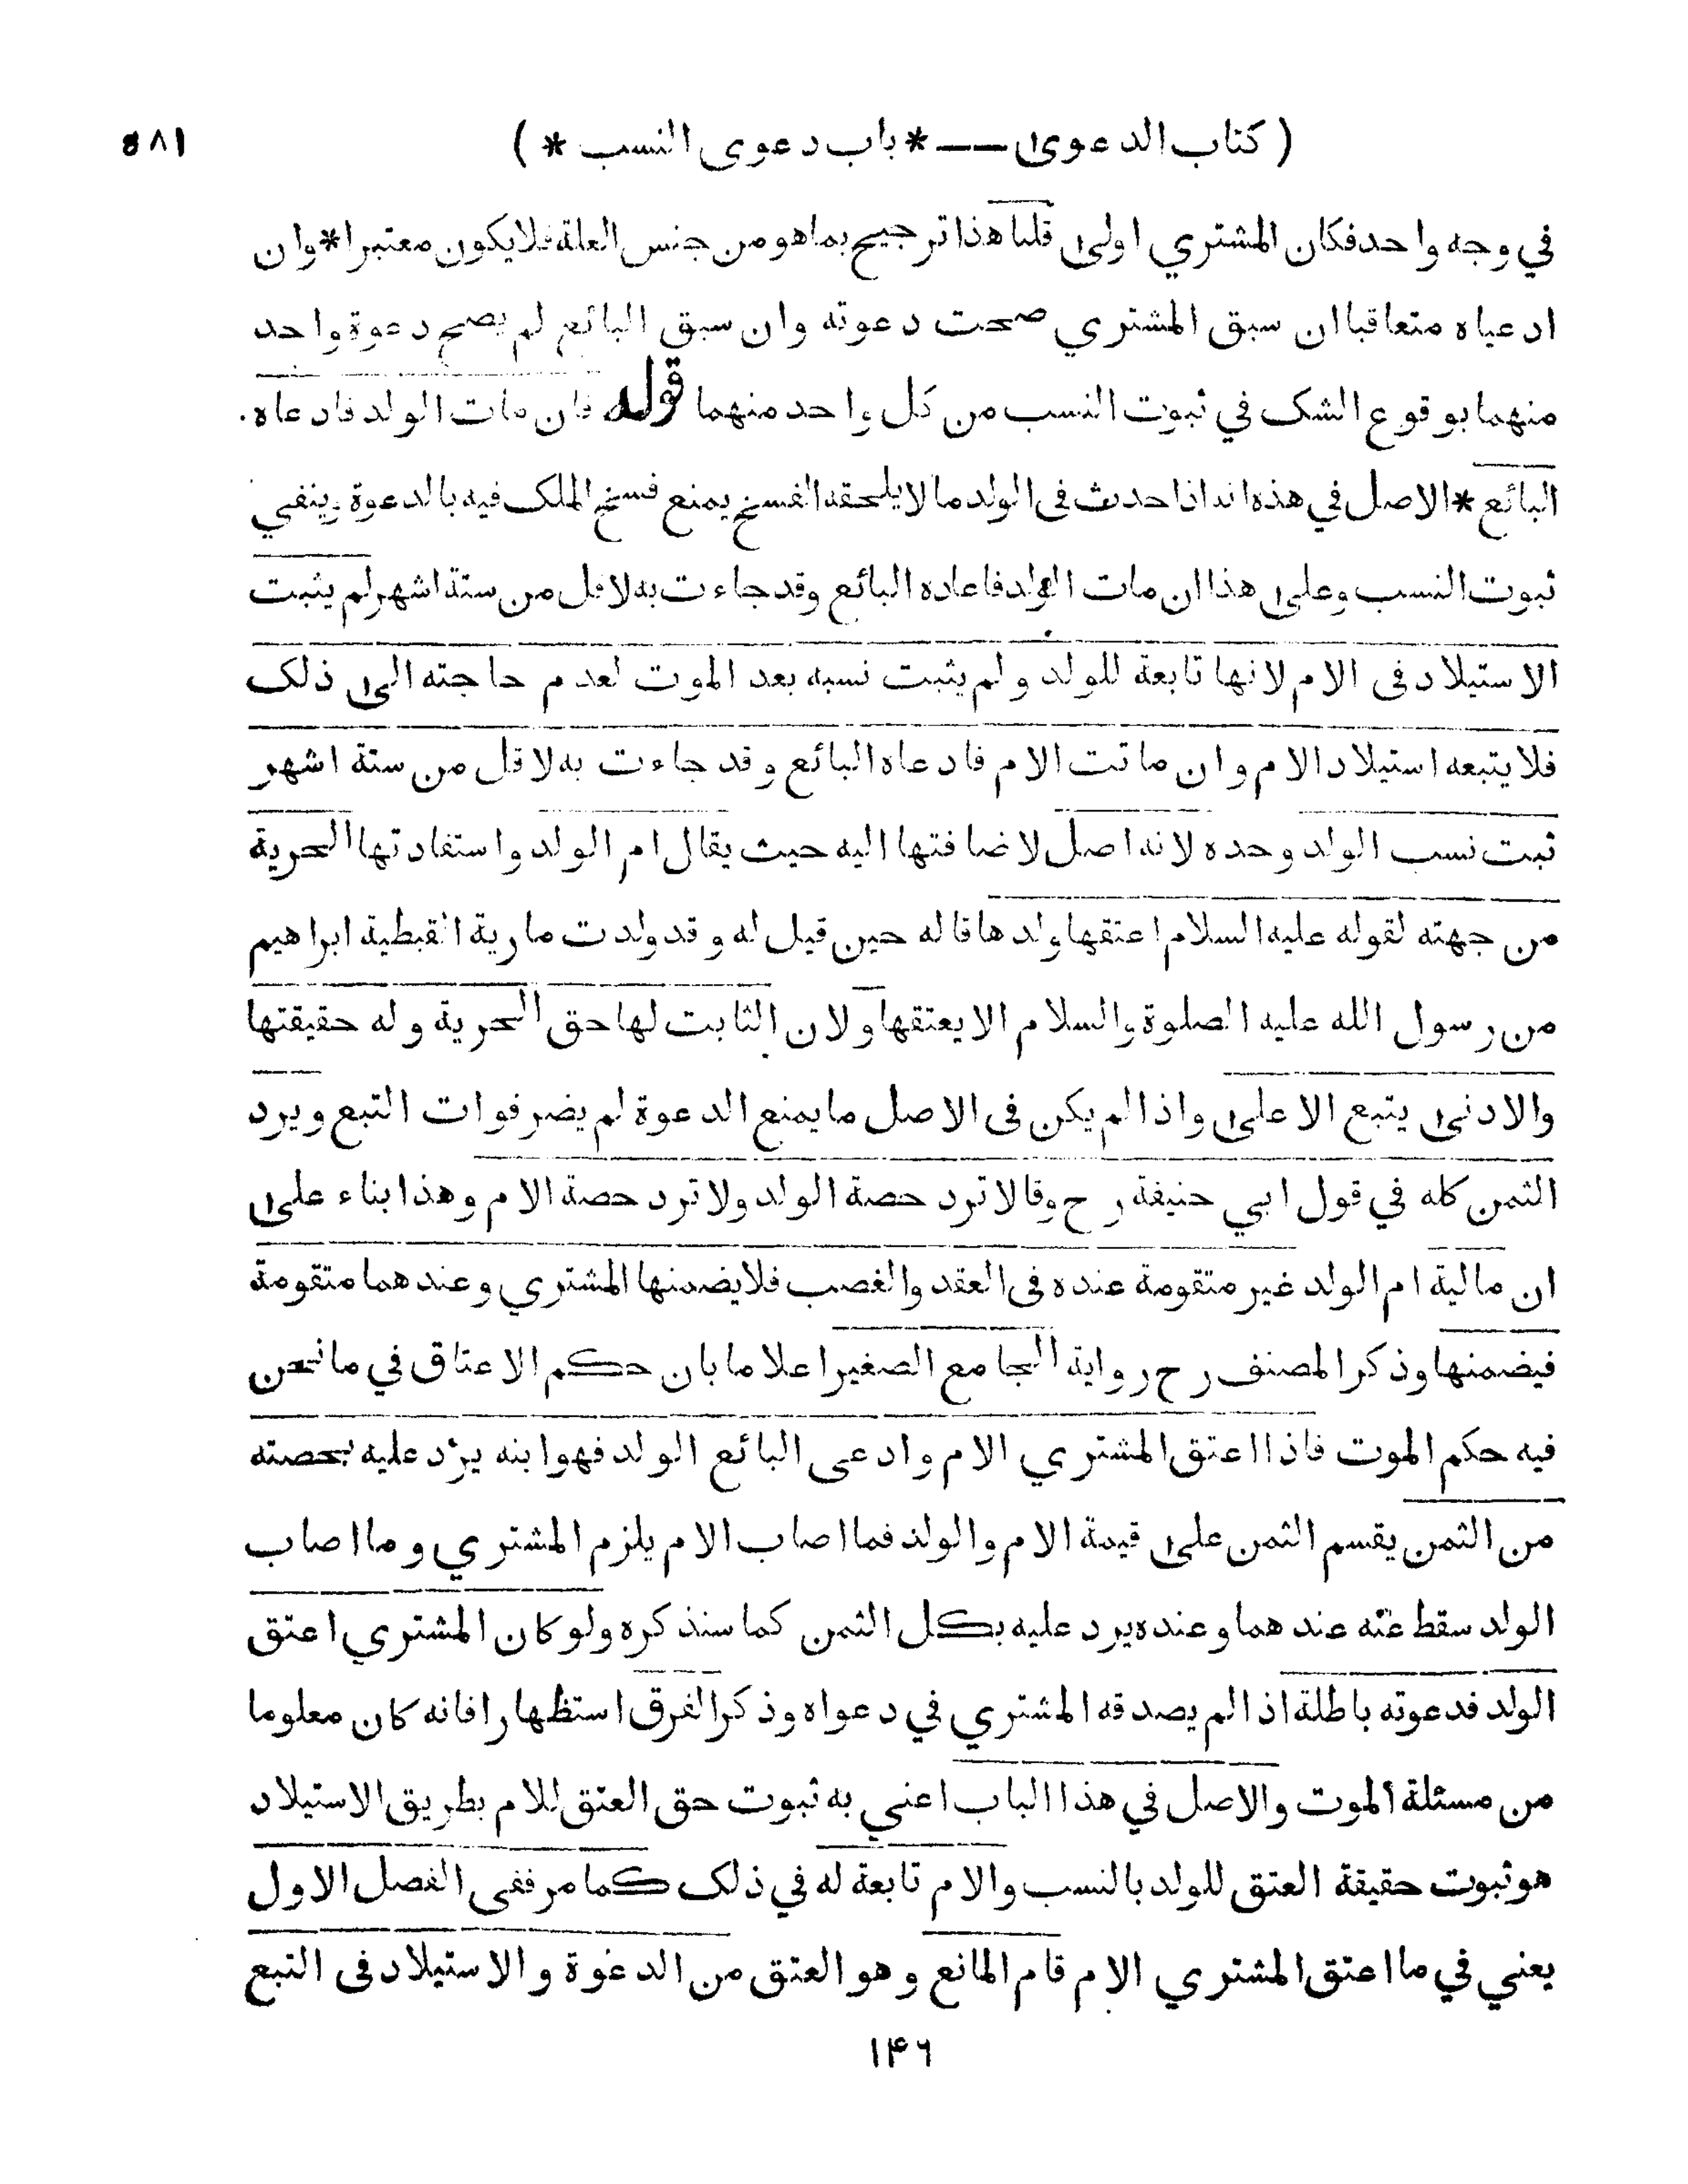 ( كتاب الدعوى — * باب دعوى النسب * ) ۵۸۱
في وجه واحد فكان المشتري اولى قلنا هذا ترجيح بما هو من جنس العلة فلا يكون معتبرا * وان
ادعياه متعاقبا ان سبق المشتري صحت دعوته وان سبق البائع لم يصح دعوة واحد
منهما بوقوع الشك في ثبوت النسب من كل واحد منهما قوله فان مات الولد فادعاه
البائع * الاصل في هذه انه اذا حدث فى الولد ما لا يلحقه الفسخ يمنع فسخ الملك فيه بالدعوة وينفي
ثبوت النسب وعلى هذا ان مات الولد فاعاده البائع وقد جاءت به لاقل من ستة اشهر لم يثبت
الاستيلاد فى الام لانها تابعة للولد ولم يثبت نسبه بعد الموت لعدم حاجته الى ذلك
فلا يتبعه استيلاد الام وان ماتت الام فادعاه البائع وقد جاءت به لاقل من ستة اشهر
ثبت نسب الولد وحده لانه اصل لاضافتها اليه حيث يقال ام الولد واستفادتها الحرية
من جهته لقوله عليه السلام اعتقها ولدها قاله حين قيل له وقد ولدت مارية القبطية ابراهيم
من رسول الله عليه الصلوة والسلام الا يعتقها ولان الثابت لها حق الحرية وله حقيقتها
والادنى يتبع الاعلى واذا لم يكن فى الاصل ما يمنع الدعوة لم يضر فوات التبع ويرد
الثمن كله في قول ابي حنيفة رح وقالا ترد حصة الولد ولا ترد حصة الام وهذا بناء على
ان مالية ام الولد غير متقومة عنده فى العقد والغصب فلا يضمنها المشتري وعندهما متقومة
فيضمنها وذكر المصنف رح رواية الجامع الصغير اعلاما بان حكم الاعتاق في ما نحن
فيه حكم الموت فاذا اعتق المشتري الام وادعى البائع الولد فهو ابنه يرد عليه بحصته
من الثمن يقسم الثمن على قيمة الام والولد فما اصاب الام يلزم المشتري وما اصاب
الولد سقط عنه عندهما وعنده يرد عليه بكل الثمن كما سنذكره ولو كان المشتري اعتق
الولد فدعوته باطلة اذا لم يصدقه المشتري في دعواه وذكر الفرق استظهارا فانه كان معلوما
من مسئلة الموت والاصل في هذا الباب اعني به ثبوت حق العتق للام بطريق الاستيلاد
هو ثبوت حقيقة العتق للولد بالنسب والام تابعة له في ذلك كما مر ففى الفصل الاول
يعني في ما اعتق المشتري الام قام المانع وهو العتق من الدعوة والاستيلاد فى التبع
۱۴۶